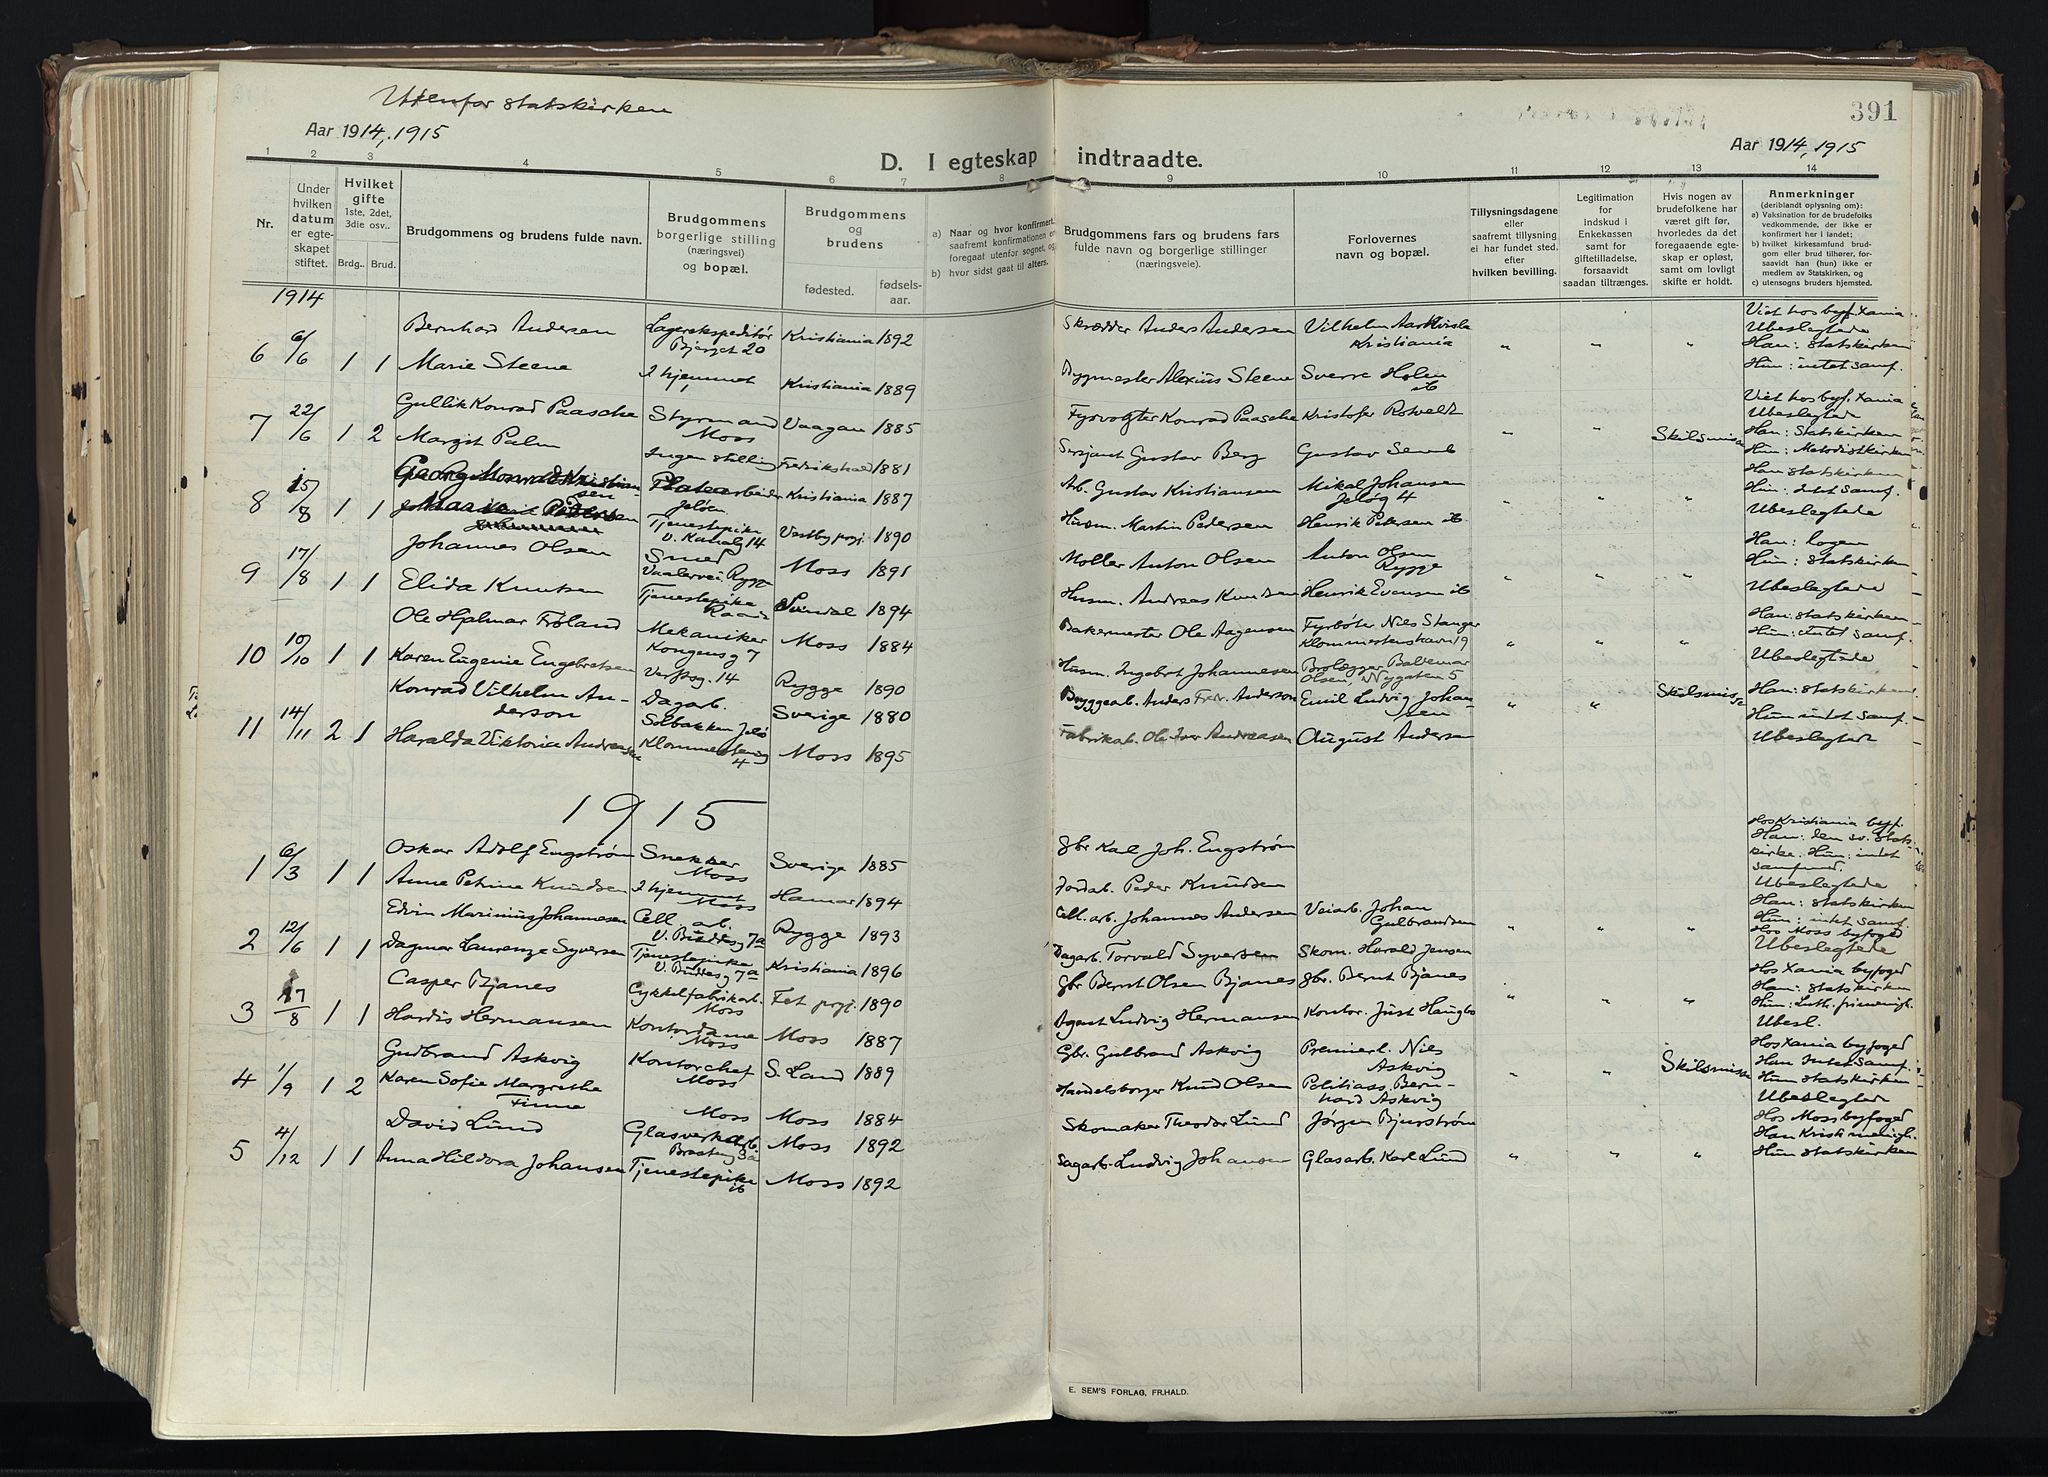 Utenfor statskirken
391
Aar 1914, 1915
Aar 1914, 1915
D. I egteskap indtraadte.
1 2 3 4 5 6 7 8 9 10 11 12 13 14
Nr.
Under hvilken datum er egteskapet stiftet.
Hvilket gifte 1ste, 2det, 3die osv..
Brdg.. Brud.
Brudgommens og brudens fulde navn.
Brudgommens borgerlige stilling (næringsvei) og bopæl.
Brudgommens og brudens
fødested. fødsels-aar.
a) Naar og hvor konfirmert, saafremt konfirmationen er foregaat utenfor sognet, og
b) hvor sidst gaat til alters.
Brudgommens fars og brudens fars fulde navn og borgerlige stillinger (næringsveie).
Forlovernes navn og bopæl.
Tillysningsdagene eller saafremt tillysning ei har fundet sted. efter hvilken bevilling.
Legitimation for indskud i Enkekassen samt for giftetilladelse, forsaavidt saadan tiltrænges.
Hvis nogen av brudefolkene har været gift før, hvorledes da det foregaaende egteskap er opløst, samt om lovligt skifte er holdt.
Anmerkninger (deriblandt oplysning om): a) Vaksination for de brudefolks vedkommende, der ikke er konfirmert her i landet; b) hvilket kirkesamfund brudgom eller brud tilhører, forsaavidt han (hun) ikke er medlem av Statskirken, og c) utensogns bruders hjemsted.
1914
6 6/6 1 1 Bernhard Andersen Lagerekspeditør Bjerget 20 Kristiania 1892 Skrædder Anders Andersen Vilhelm Kristiania " " " Viet hos byf. Xania Ubeslegtede Han: Statskirken
Marie Steene I hjemmet Kristiania 1889 Bygmester Alexius Steene Sverre Holm ib Hun: intet samf.
7 22/6 1 2 Gullik Konrad Paasche Styrmand Moss Vaagan 1885 Fyrvogter Konrad Paasche Kristofer Rotvaldt " " Skilsmisse Viet hos byf. Xania Ubeslegtede Han: Statskirken
Margit Palm Ingen stilling Fredrikshald 1881 Sersjant Gustav Berg Gustav Hun: Metodistkirken
8 15/8 1 1 Georg Monrad Kristiansen Jeløen Kristiania 1887 Arb. Gustav Kristiansen Mikal Johansen Jeløg 4 " " " Han statskirken Hun: Intet samf.
Pedersen Tjenestepike V. Kanalg 14 Vestby prgj. 1890 Husm. Martin Pedersen Henrik Petersen ib Ubeslegtede
9 17/8 1 1 Johannes Olsen Smed Vaalervei, Rygge Moss 1891 Møller Anton Olsen Anton Olsen Rygge " " " Han: Logen Hun: Statskirken
Elida Knutsen Tjenestepike Svindal 1894 Husm. Andreas Knudsen Henrik Evensen ib Ubeslegtede
10 10/10 1 1 Ole Hjalmar Frøland Mekaniker Kongensg 7 Moss 1884 Bakermester Ole Aagensen Fyrbøter Nils Stanger 19 " " " Han: statskirken Hun: Intet samf.
Karen Eugenie Engebretsen Verftsg. 14 Rygge 1890 Husm. Ingebrt Johannesen Brolægger Baldemar Olsen, Nygaten 5 Ubeslegtede
11 14/11 2 1 Konrad Vilhelm Anderson Dagarb. Solbakken Jelø Sverige 1880 Bryggearb. Anders Fr. Anderson Emil Ludvig Johansen " " Skilsmisse Han: statskirken Hun intet samf.
Haralda Viktoria Andreasen 4 Moss 1895 Fabrikarb. Ole Andreasen August Andersen Ubeslegtede
1915
1 6/3 1 1 Oskar Adolf Engstrøm Snekker Moss Sverige 1885 Gbr Karl Joh. Engstrøm Hos Kristiania byf. Han: den sv. statskirke. Hun: intet samfund.
Anne Petrine Knudsen I hjemmet Moss Hamar 1894 Jordarb. Peder Knudsen Ubeslegtede
2 12/6 1 1 Edvin Marinius Johannesen Cell. arb. V. Buddesg 7a Rygge 1893 Cell. arb. Johannes Andersen Veiarb. Johan Gulbrandsen " " " Han: Statskirken Hun: intet samf. Hos Moss byfoged
Dagmar Laurenze Syversen Tjenestepike V. Buddesg 7a Kristiania 1896 Dagarb. Torvald Syversen Skom. Harald Jensen Ubeslegtede
3 17/8 1 1 Casper Bjanes Cykkelfabrikarb. Moss Fet prgj. 1890 Gbr Bernt Olsen Bjanes Gbr. Bernt Bjanes " " " Hos Xania byfoged Han: Statskirken
Hardis Hermansen Kontordame Moss Moss 1887 Agent Ludvig Hermansen Kontor. Just Haugbo Hun: Luth. frimenigh. Ubesl.
4 1/9 1 2 Gudbrand Askvig Kontorchef Moss S. Land 1889 Gbr. Gulbrand Askvig Premierl. Nils Askvig " " Skilsmisse Hos Xania byfoged Han Intet samf.
Karen Sofie Margrethe Finne Moss Moss 1884 Handelsborger Knud Olsen Politiass. Bernhard Askvig Hun statskirken Ubeslegtede
5 4/12 1 1 David Lund Glasverkarb. 3a Moss 1892 Skomaker Theodor Lund Jørgen Bjurstrøm " " " Hos Moss byfoged Han Kristi menigh.
Anna Hildora Johansen Tjenestepike ib Moss 1892 Sagarb. Ludvig Johansen Glasarb. Karl Lund Hun statskirken
E. SEM'S FORLAG, FR.HALD.